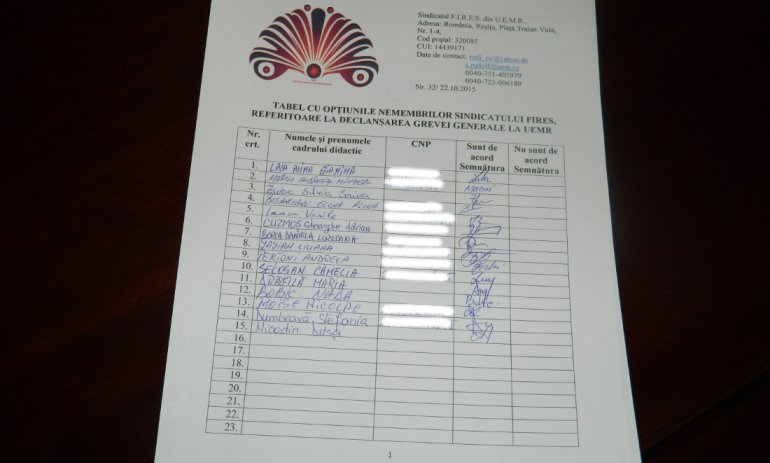 Sindicatul F.I.R.E.S. din U.E.M.R.,
Adresa: România, Reșița, Piața Traian Vuia,
Nr. 1-4,
Cod poștal: 320085
CUI: 14439171
Date de contact:
0040-751-405979
0040-723-006189
Nr. 32/ 22.10.2015
TABEL CU OPȚIUNILE NEMEMBRILOR SINDICATULUI FIRES,
REFERITOARE LA DECLANȘAREA GREVEI GENERALE LA UEMR
Nr. crt. Numele și prenumele cadrului didactic CNP Sunt de acord Semnătura Nu sunt de acord Semnătura
1.
2.
3. Silvia
4.
5. Vasile
6. CUZMOS Gheorghe Adrian
7. DANIELA LOREDANA
8. LILIANA
9. ANDREEA
10. SECOSAN CAMELIA
11. MARIA
12. BOBIC NADA
13. MOISE NICOLAE
14. Dumbravă Ștefania
15. Nicodin
16.
17.
18.
19.
20.
21.
22.
23.
1